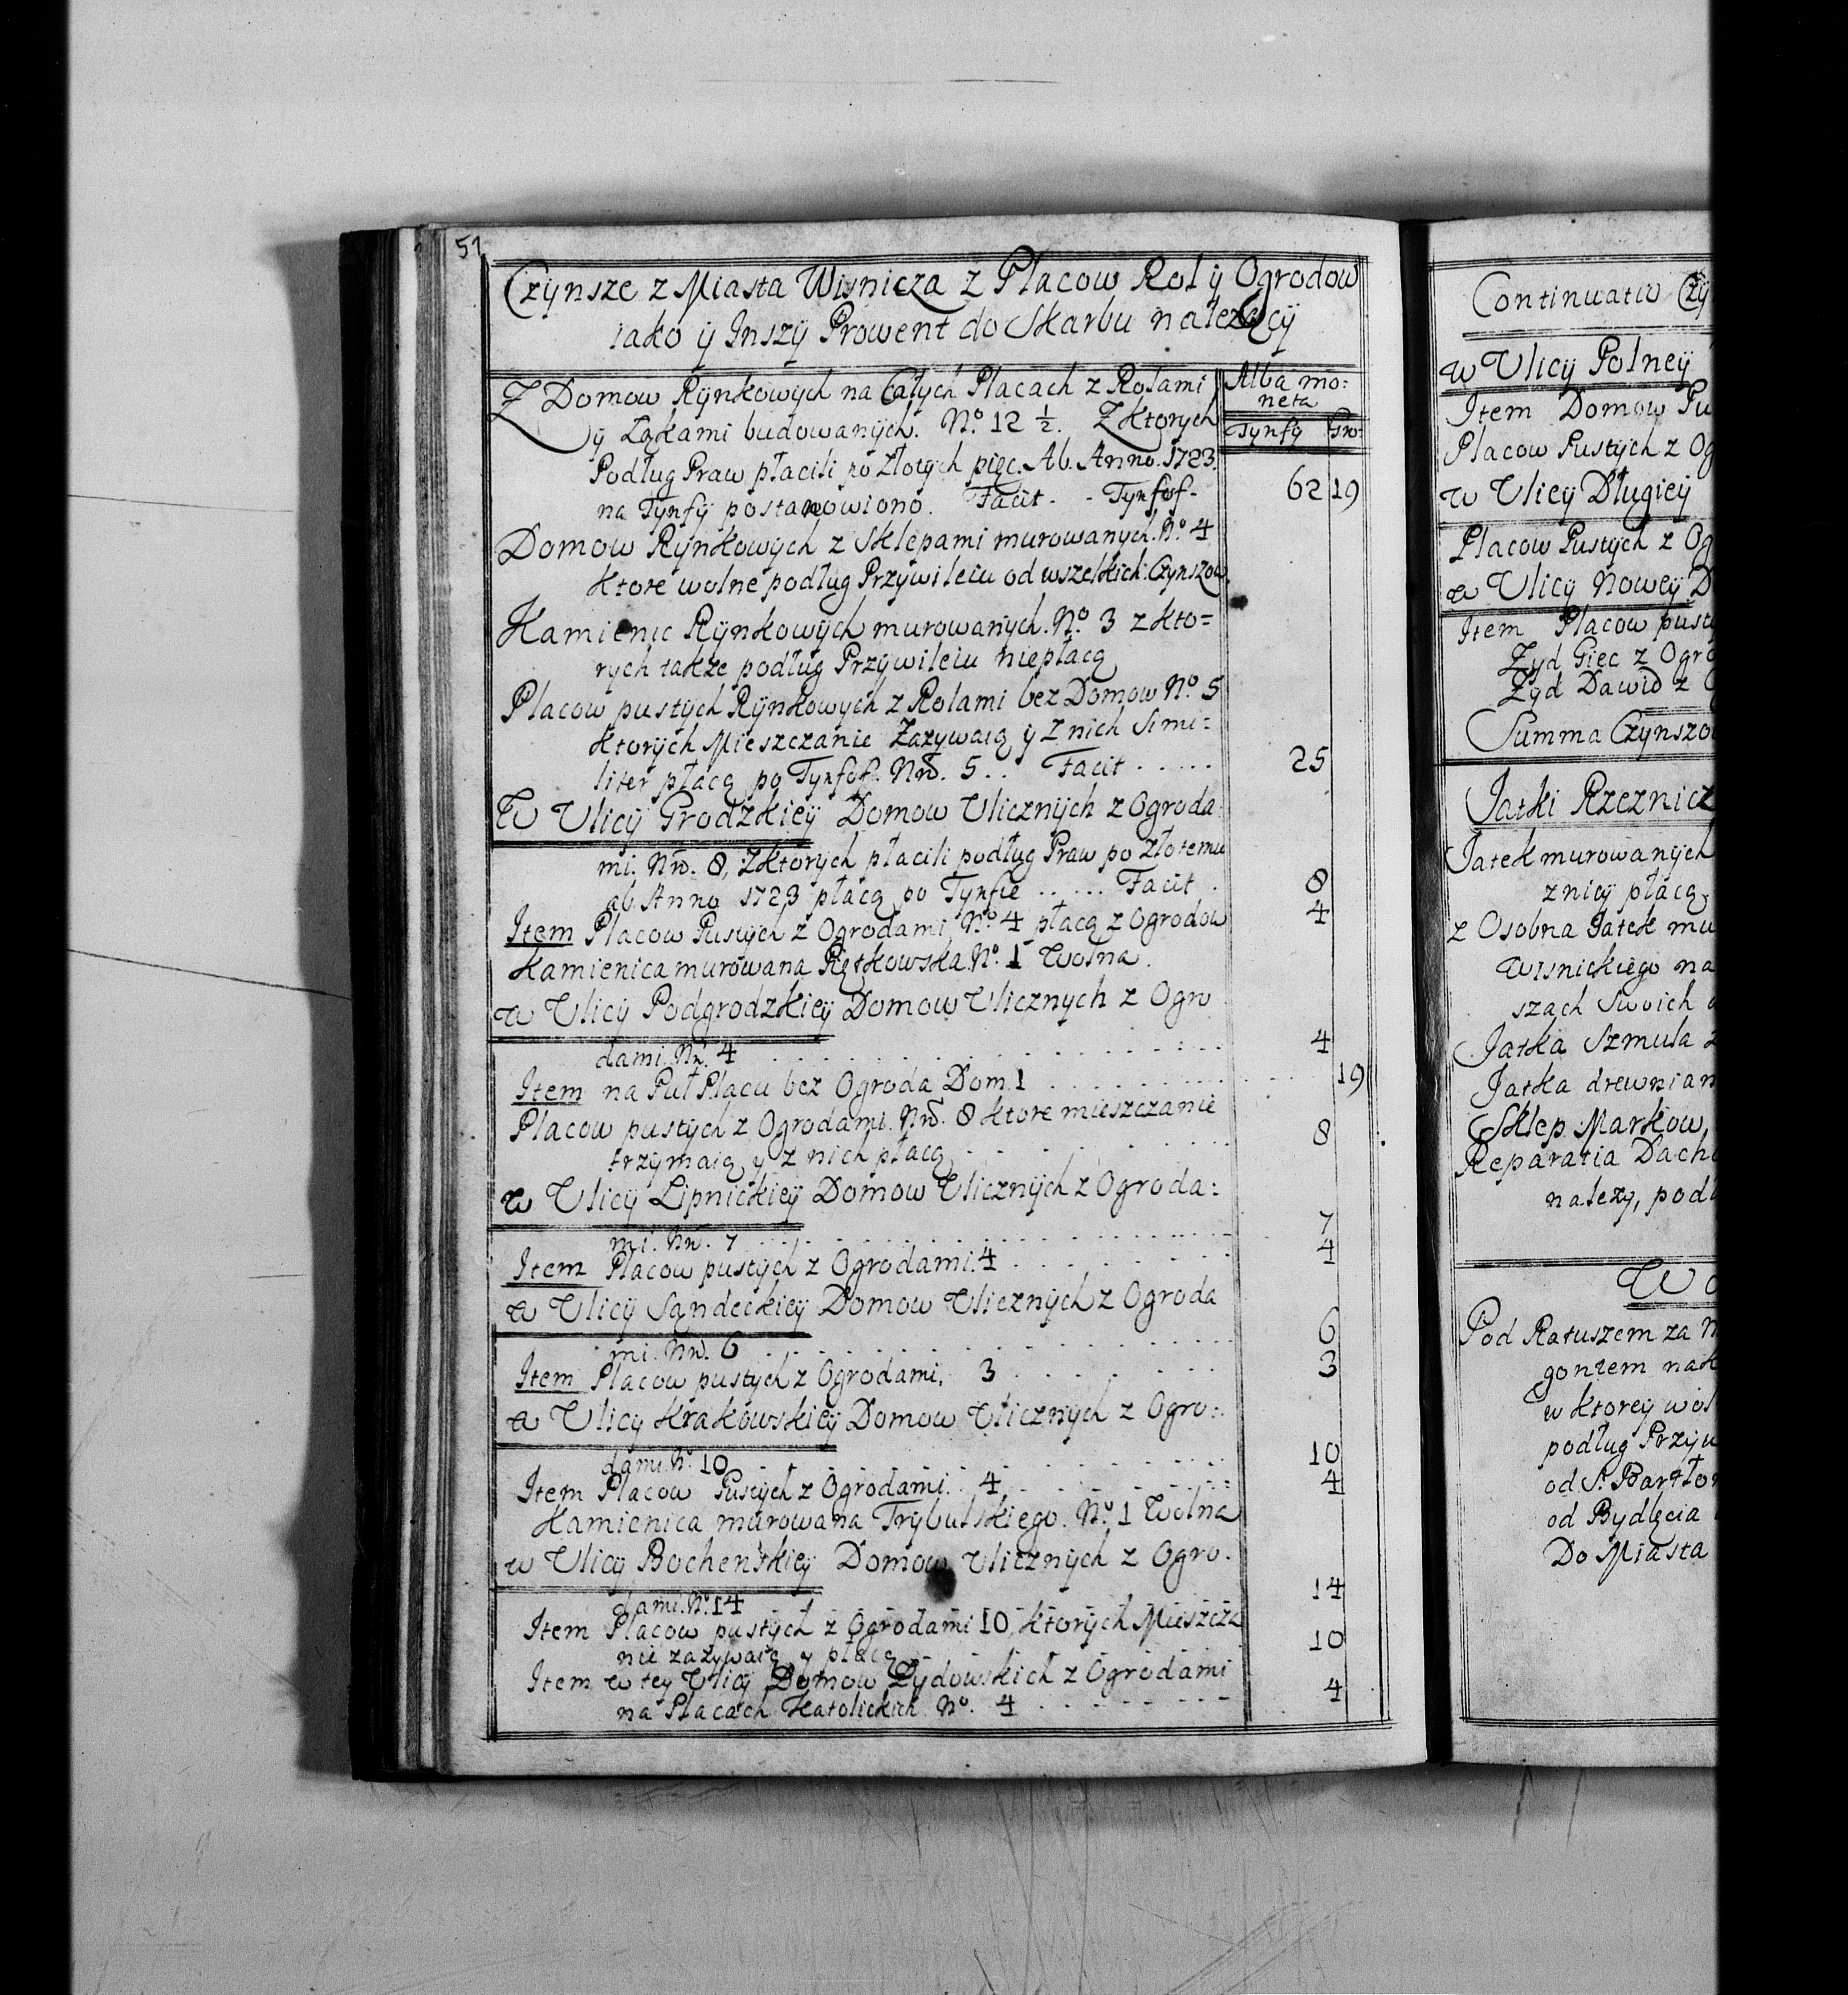 51
Czynsze z Miasta Wisnicza z Placow Rol ÿ Ogrodow
iako ÿ Inszÿ Prowent do Skarbu nalezący
Alba mo:
neta
Tynfy Gr:
Z Domow Rÿnkowÿch na Całÿch Placach z Rolami
ÿ Łąkami budowanÿch. No. 12 ½. Z ktorÿch
Podług Praw płacili po złotÿch pięc. Ab. Anno. 1723.
na Tynfÿ postanowiono. Facit - - Tynfof - 62 19
Domow Rÿnkowÿch z Sklepami murowanÿch. No. 4
ktore wolne podług Przÿwileiu od wszelkich Czÿnszow
Kamienic Rÿnkowÿch murowanÿch. No. 3 z kto=
rych takze podług Przÿwileiu niepłacą
Placow pustÿch Rÿnkowÿch z Rolami bez Domow No. 5
ktorÿch Mieszczanie Zazÿwaią ÿ Z nich Simi:
liter płacą po Tynfof. Nro. 5 . . Facit . . . . . 25
W Ulicÿ Grodzkieÿ Domow Ulicznÿch z Ogroda:
mi. Nro. 8, Z ktorÿch płacili podług Praw po złotemu
ab. Anno 1723 płacą po Tynfie . . . . . Facit . 8
Item Placow Pustÿch z Ogrodami No. 4 płacą z Ogrodow 4
Kamienica murowana No. 1 Wolna.
w Ulicÿ Podgrodzkieÿ Domow Ulicznych z Ogro
dami. Nr. 4 4
Item na Puł Placu bez Ogroda Dom. 1 19
Placow pustÿch z Ogrodami. Nro. 8 ktore mieszczanie
trzymaią y z nich płacą 8
w Ulicÿ Lipnickieÿ Domow Ulicznÿch z Ogroda:
mi. Nro. 7 7
Item Placow pustÿch z Ogrodami. 4 4
w Ulicÿ Sandeckieÿ Domow Ulicznÿch z Ogroda
mi. Nro. 6 6
Item Placow pustÿch z Ogrodami, 3 3
w Ulicy Krakowskieÿ Domow Ulicznÿch z Ogro:
dami. No. 10 10
Item Placow Pustÿch z Ogrodami. 4 4
Kamienica murowana Trÿbulskiego. No. 1 Wolna
w Ulicÿ Bochenskieÿ Domow Ulicznÿch z Ogro.
dami. No. 14 14
Item Placow pustÿch z Ogrodami 10, ktorÿch Mieszcza
nie zazywaią y płacą 10
Item w tey Ulicÿ Domow Zÿdowskich z Ogrodami
na Placach Katolickich No. 4 4
Continuatio Czÿ
w Ulicÿ Polneÿ
Item Domow Pu
Placow Pustÿch z Og
w Ulicy Długieÿ
Placow Pustÿch z Og
w Ulicy Noweÿ D
Item Placow pust
Zyd Giec z Ogro
Zÿd Dawid z
Summa Czynszo
Jatki Rzeznicz
Jatek murowanÿch
znicÿ płacą
z Osobna Jatek mu
Wisnickiego na
szach Swoich
Jatka Szmula z
Jatka drewnian
Sklep Markow,
Reparatia Dach
nalezy, podł
Pod Ratuszem za
goniem nak
w ktorey wol
podług Przÿw
od S. Bartłom
od Bydlęcia
Do Miasta